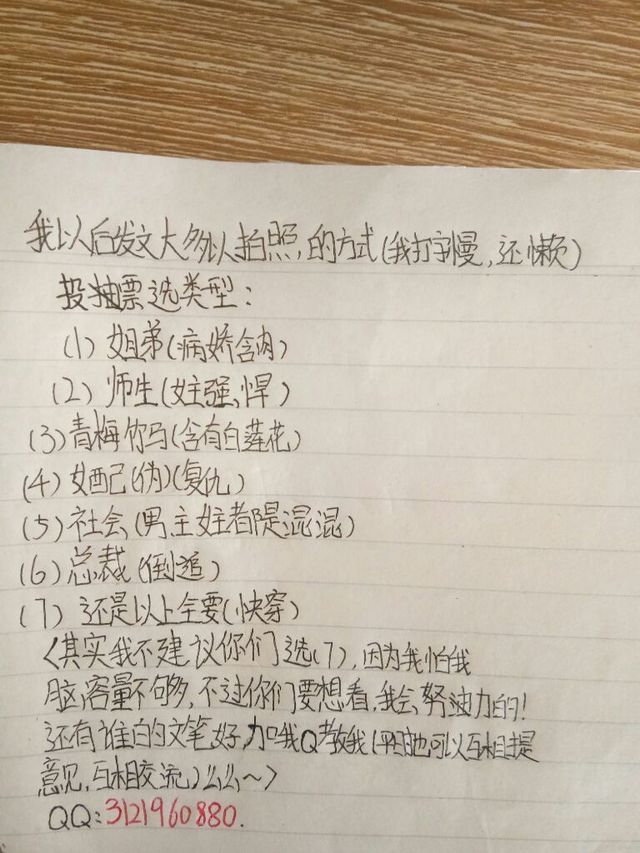 我以后发文大多以拍照,的方式(我打字慢,还懒)
投抽票选类型:
(1)姐弟(病娇含肉)
(2)师生(女主强,悍)
(3)青梅竹马(含有白莲花)
(4)妲己(伪)(复仇)
(5)社会(男主女主都是混混)
(6)总裁(倒追)
(7)还是以上全要(快穿)
〈其实我不建议你们选(7),因为我怕我
脑容量不够多,不过你们要想看,我会努力的!
还有谁的文笔好,加我Q教我(平时也可以互相提
意见,互相交流)么么~〉
QQ:3121960880.